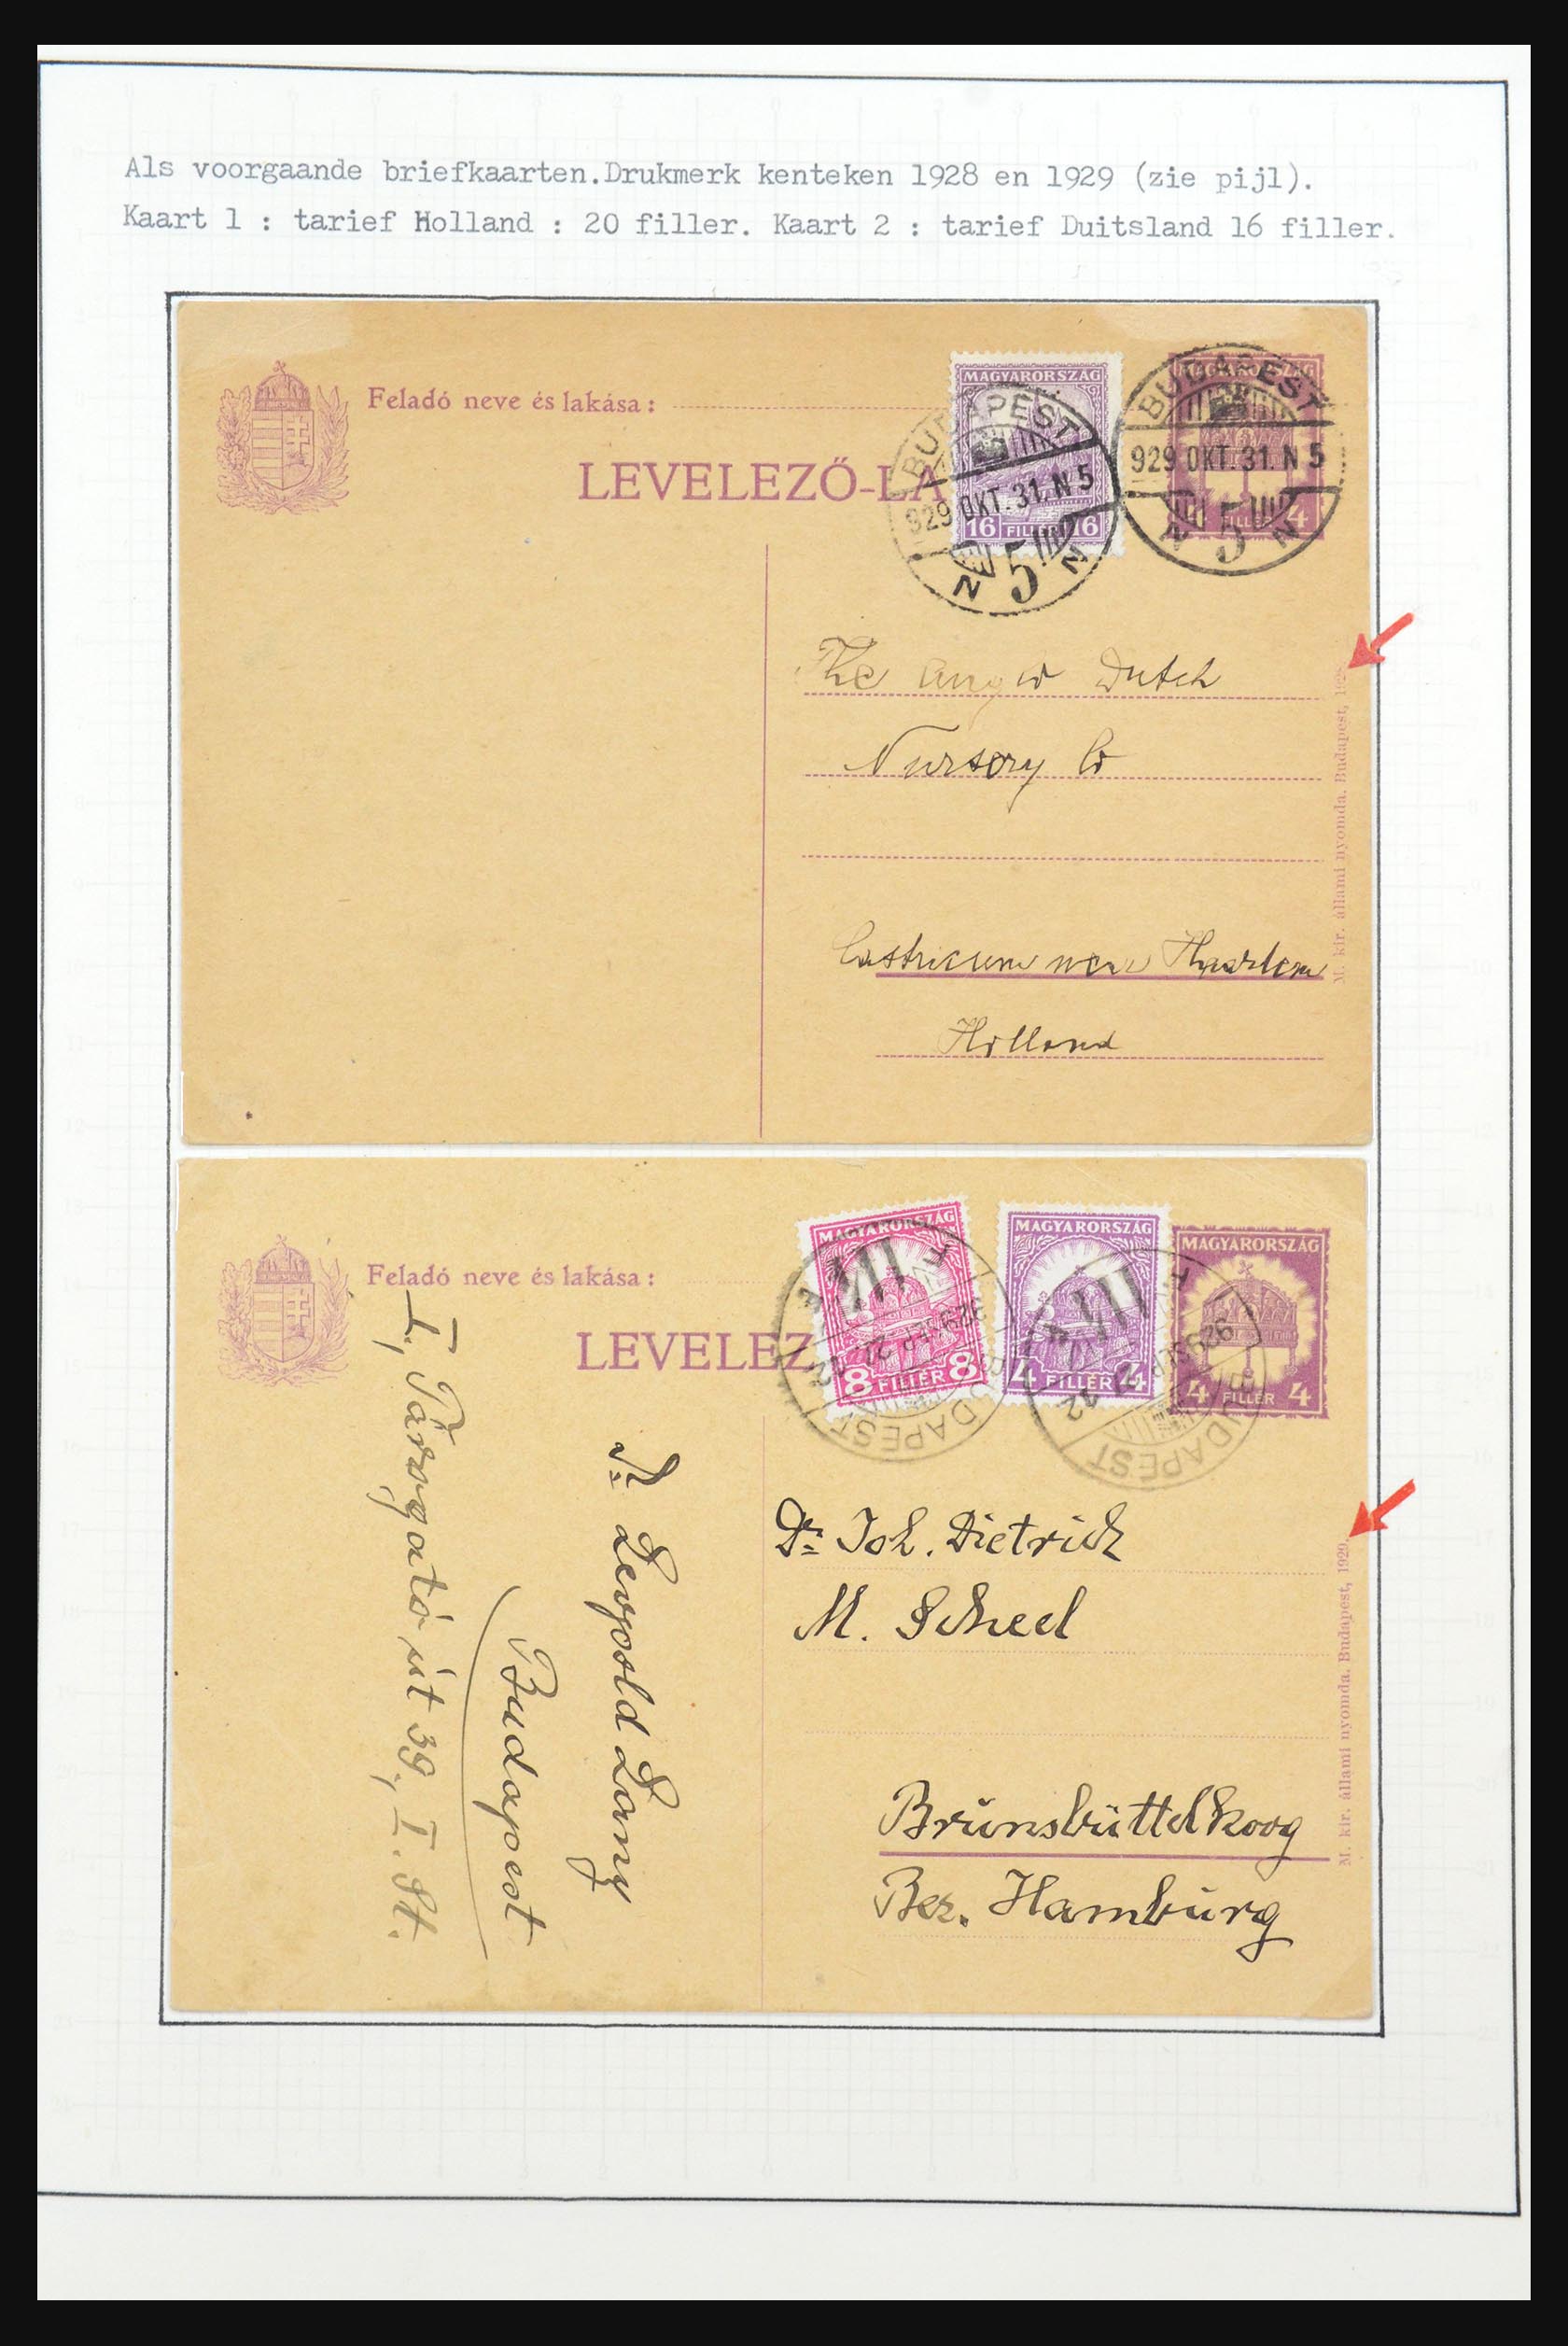 Als voorgaande briefkaarten.Drukmerk kenteken 1928 en 1929 (zie pijl).
Kaart 1 : tarief Holland : 20 filler. Kaart 2 : tarief Duitsland 16 filler.
Feladó neve és lakása:
LEVELEZŐ-LA
MAGYARORSZÁG
16 FILLÉR 16
BUDAPEST
929 OKT. 31. N 5
N 5 N
MAGYARORSZÁG
FILLÉR 4
BUDAPEST
929 OKT. 31. N 5
N 5 N
The Dutch
Nursory Co
Castricum near Haarlem
Holland
M. kir. állami nyomda. Budapest, 1928.
Feladó neve és lakása:
LEVELEZ
MAGYARORSZÁG
8 FILLÉR 8
BUDAPEST
MAGYARORSZÁG
4 FILLÉR 4
BUDAPEST
MAGYARORSZÁG
4 FILLÉR 4
Dr. Joh. Dietrich
M. Scheel
Brunsbüttelkoog
Bez. Hamburg
M. kir. állami nyomda. Budapest, 1929.
Budapest
I, Tárogató út 39, I. St.